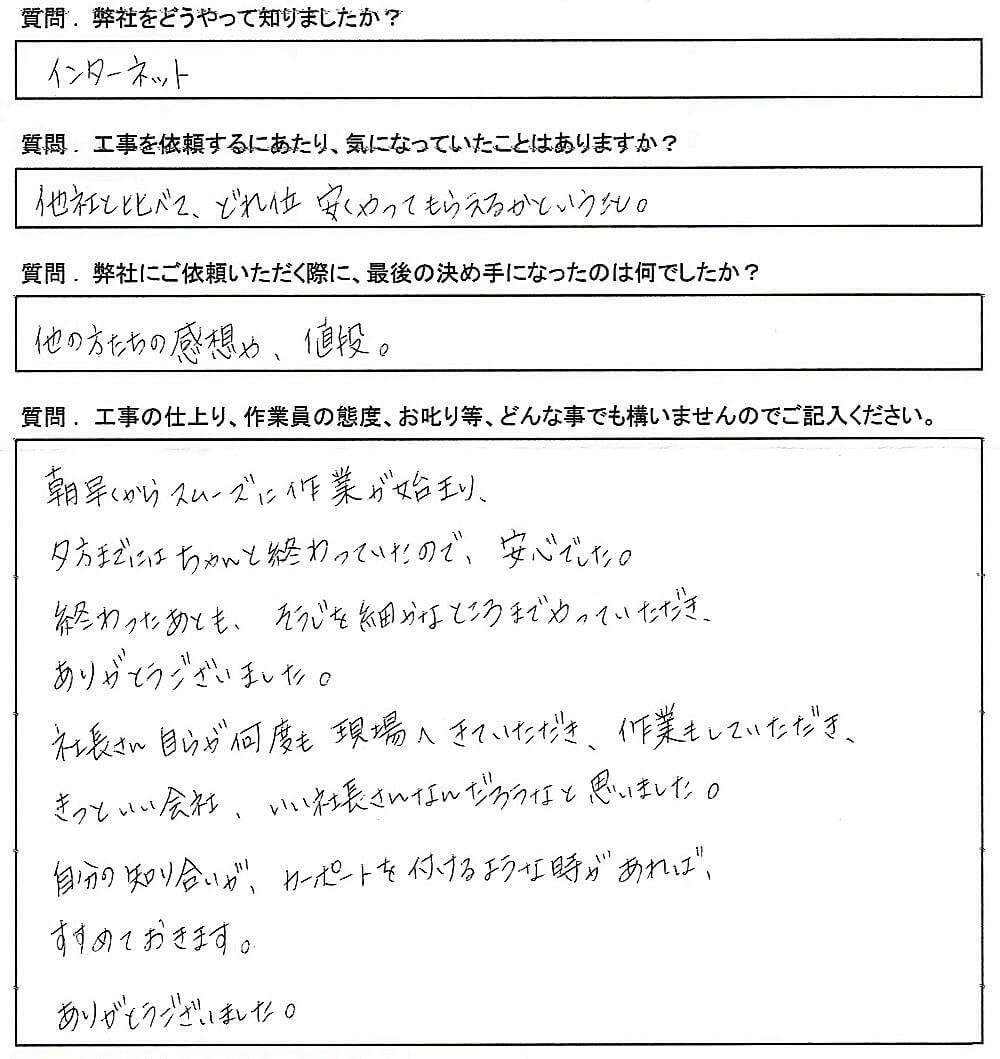 質問．弊社をどうやって知りましたか？
インターネット
質問．工事を依頼するにあたり、気になっていたことはありますか？
他社と比べて、どれ位 安くやってもらえるかという点。
質問．弊社にご依頼いただく際に、最後の決め手になったのは何でしたか？
他の方たちの感想や、値段。
質問．工事の仕上り、作業員の態度、お叱り等、どんな事でも構いませんのでご記入ください。
朝早くからスムーズに作業が始まり、
夕方までにはちゃんと終わっていたので、安心でした。
終わったあとも、そうじを細かなところまでやっていただき、
ありがとうございました。
社長さん自らが何度も現場へきていただき、作業もしていただき、
きっといい会社、いい社長さんなんだろうなと思いました。
自分の知り合いが、カーポートを付けるような時があれば、
すすめておきます。
ありがとうございました。